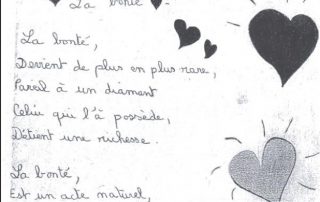 La bonté.
La bonté,
Devient de plus en plus rare,
Pareil à un diamant
Celui qui l'à possède,
Détient une richesse.
La bonté,
Est un acte naturel,